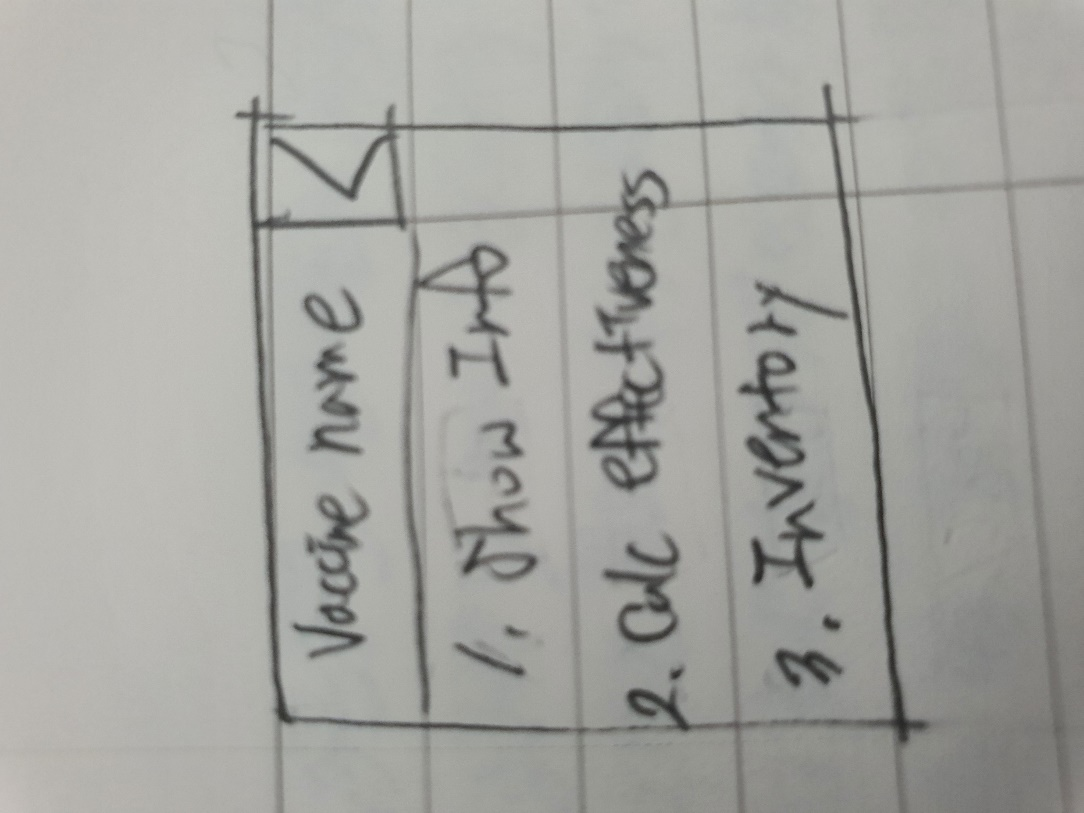 Vaccine name
1. Show Info
2. Calc effectiveness
3. Inventory